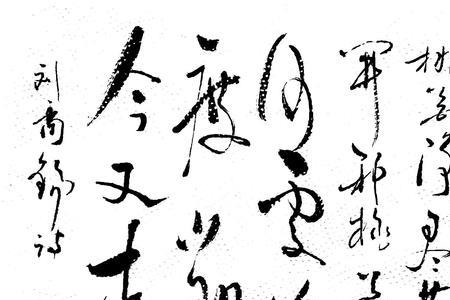 桃花净尽菜
开种桃
何处
度刘
今又来
刘禹锡诗